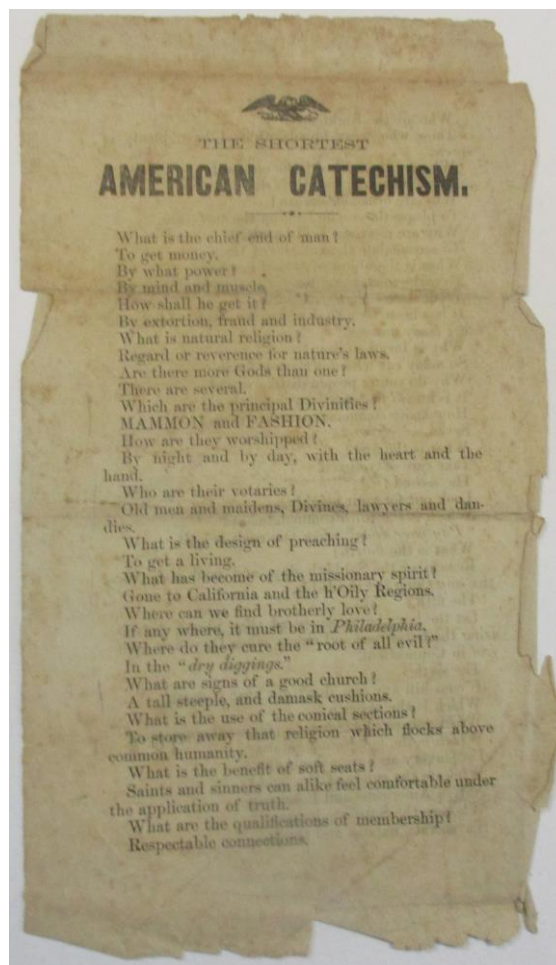 THE SHORTEST
AMERICAN CATECHISM.
What is the chief end of man?
To get money.
By what power?
By mind and muscle.
How shall he get it?
By extortion, fraud and industry.
What is natural religion?
Regard or reverence for nature's laws.
Are there more Gods than one?
There are several.
Which are the principal Divinities?
MAMMON and FASHION.
How are they worshipped?
By night and by day, with the heart and the
hand.
Who are their votaries?
Old men and maidens, Divines, lawyers and dan-
dies.
What is the design of preaching?
To get a living.
What has become of the missionary spirit?
Gone to California and the h'Oily Regions.
Where can we find brotherly love?
If any where, it must be in Philadelphia.
Where do they cure the "root of all evil?"
In the "dry diggings."
What are signs of a good church?
A tall steeple, and damask cushions.
What is the use of the conical sections?
To store away that religion which flocks above
common humanity.
What is the benefit of soft seats?
Saints and sinners can alike feel comfortable under
the application of truth.
What are the qualifications of membership?
Respectable connections.